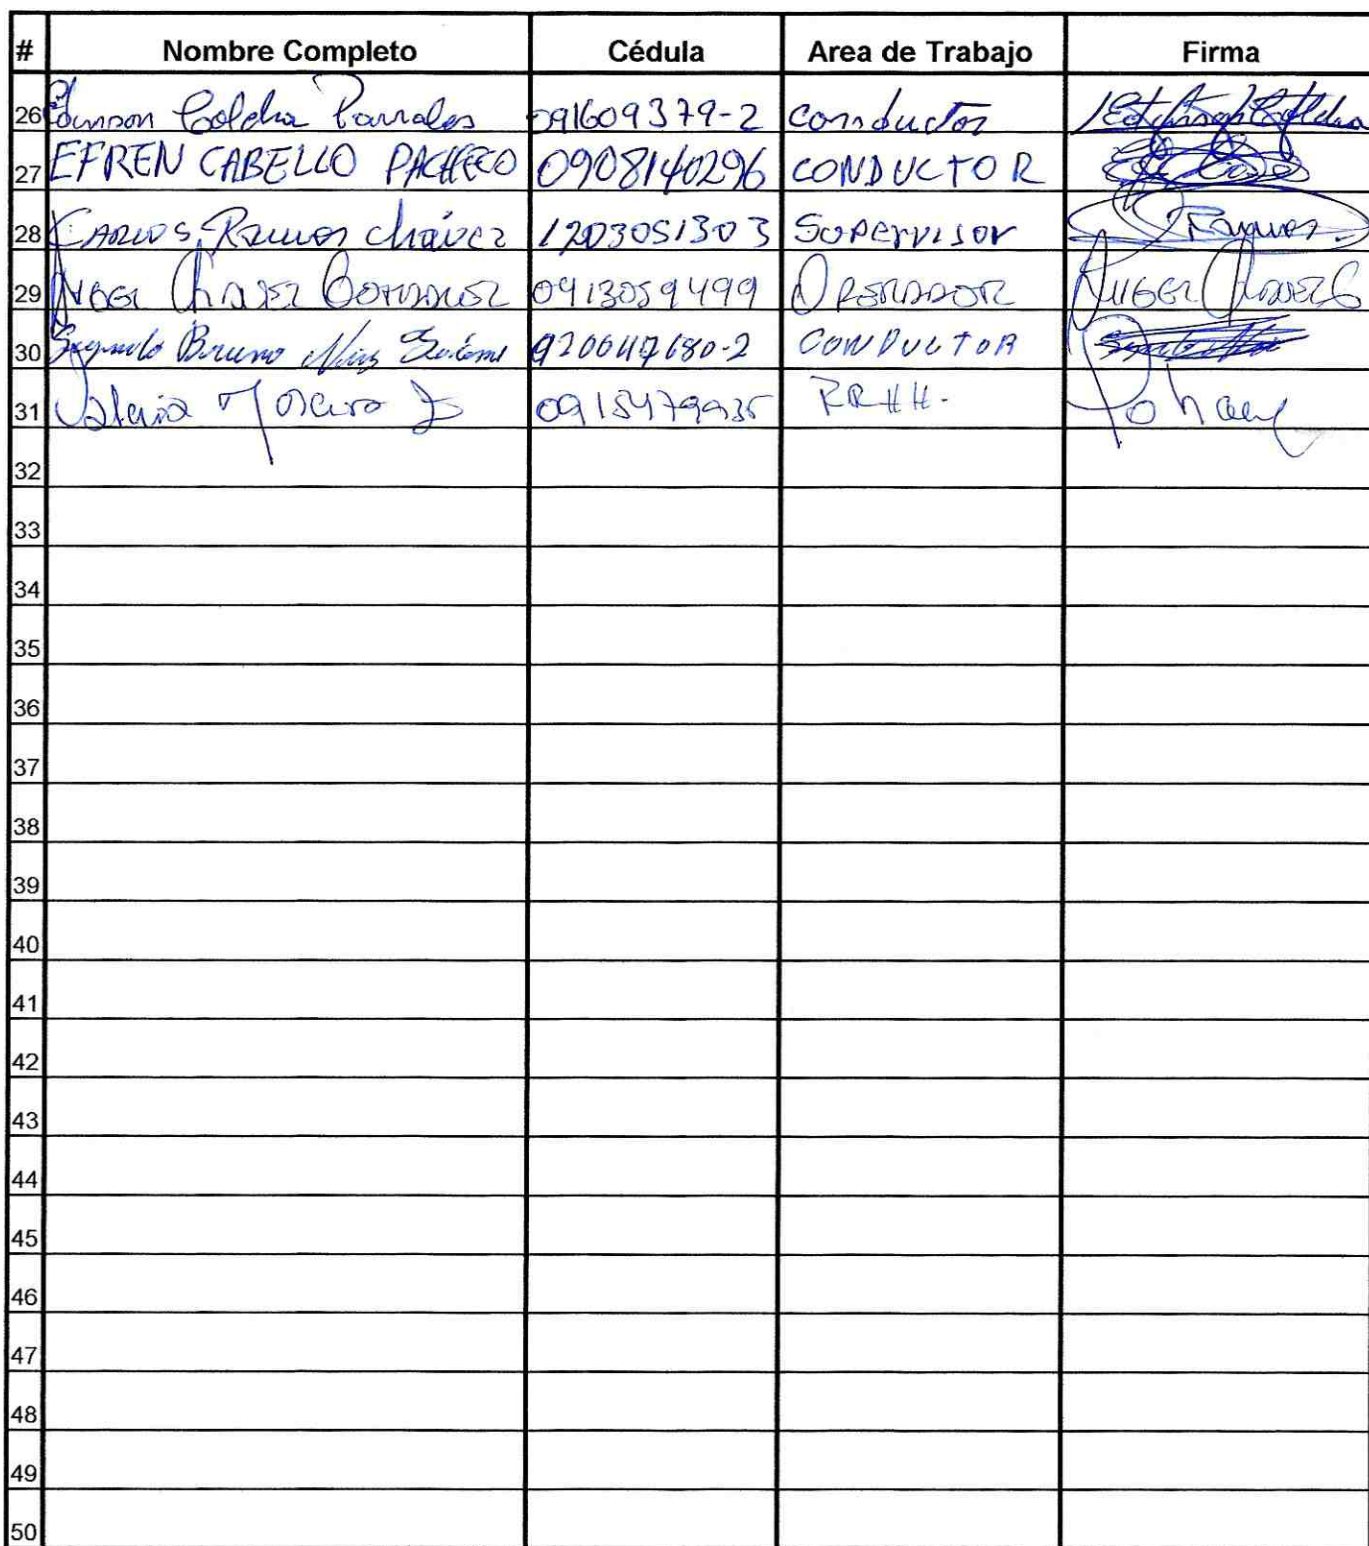 # Nombre Completo Cédula Area de Trabajo Firma
26 Parrales 091609379-2 conductor
27 EFREN CABELLO PACHECO 0908140296 CONDUCTOR
28 CARLOS Ramos chávez 1203051303 SUPERVISOR Ramos
29 Chavez 0913059499 OPERADOR
30 Segundo Bruno 920047680-2 CONDUCTOR
31 Valeria 0915479935 RRHH.
32
33
34
35
36
37
38
39
40
41
42
43
44
45
46
47
48
49
50